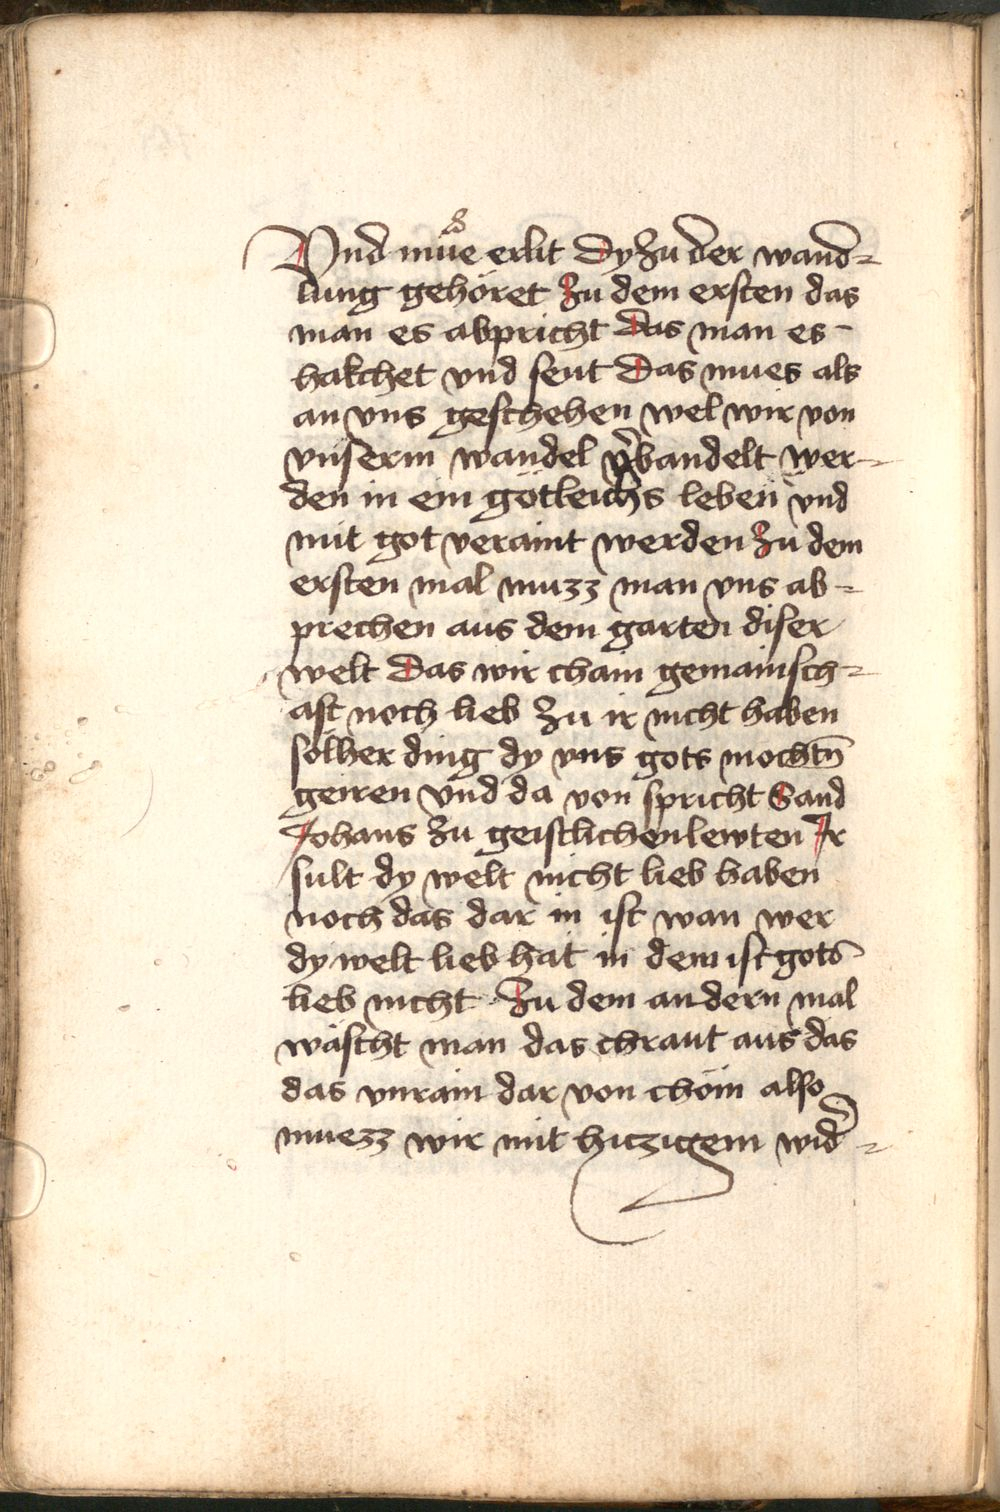 Vnd mue erlit Dy zu der wand⸗
lung gehöret Zu dem ersten das
man es abpricht Das man es
hakchet vnd seut Das mues als
an vns geschehen wel wir von
vnserm wandel v̉bandelt wer⸗
den in ein götleichs leben vnd
mit got veraint werden Zu dem
ersten mal muzz man vns ab⸗
prechen aus dem garten diser
welt Das wir chain gemainsch⸗
aft noch lieb zu ir nicht haben
solher ding dy vns gots mochtn̄
geiren Vnd da von spricht Sand
Johans zu geistlichen lewten Ir
sult dy welt nicht lieb haben
noch das dar in ist wan wer
dy welt lieb hat in dem ist gots
lieb nicht Zu dem andern mal
wäscht man das chraut aus das
das vnrain dar von chöm also
muezz wir mit hiczigem wid⸗